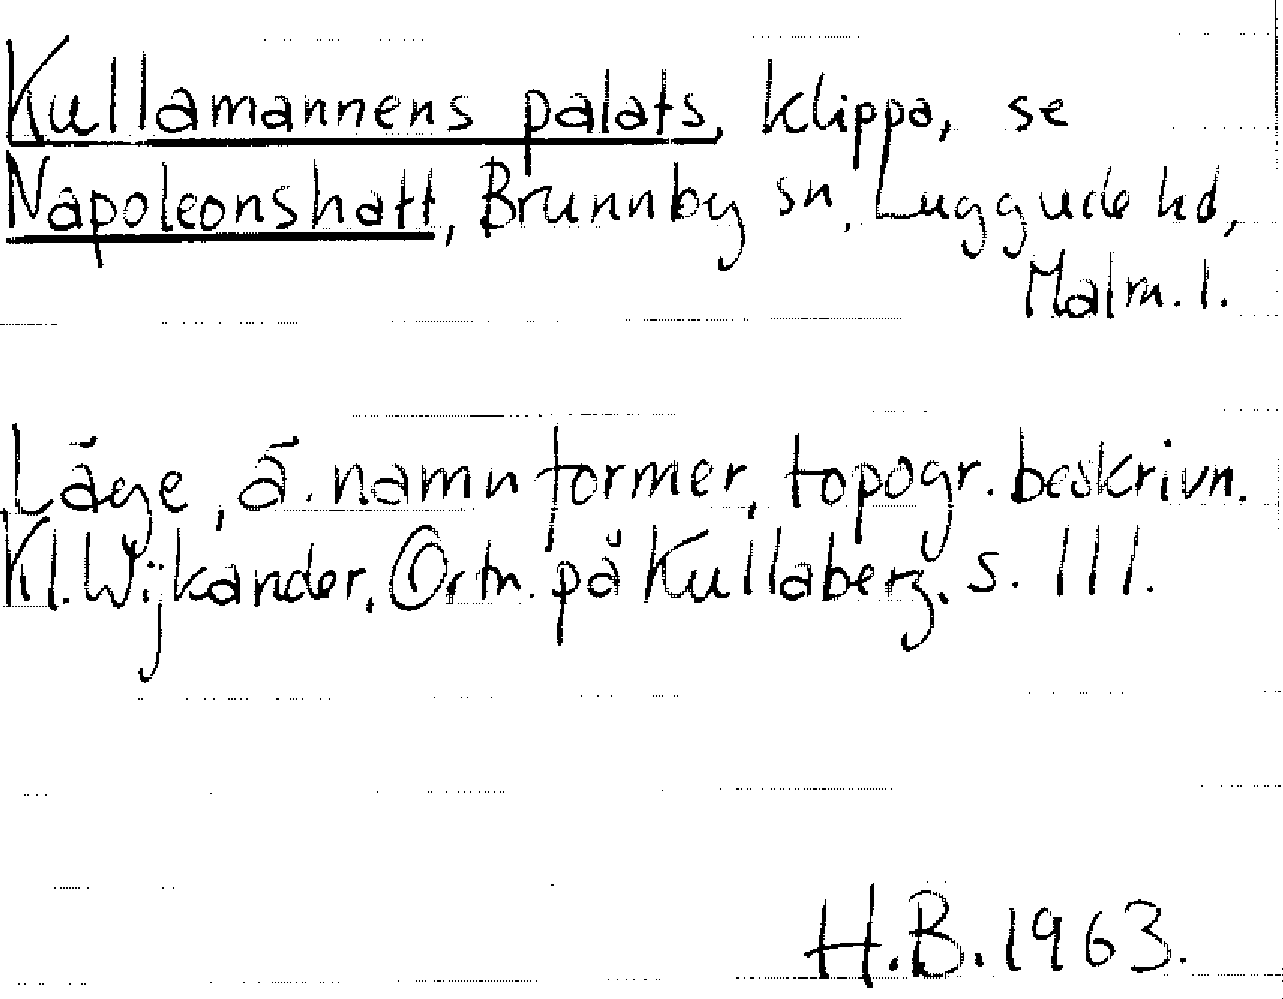 Kullamannens palats, klippa, se
Napoleonshatt, Brunnby sn, Luggude hd,
Malm. l.
Läge, ä. namnformer, topogr. beskrivn.
Kl. Wijkander, Ortn. på Kullaberg, s. 111.
H.B. 1963.